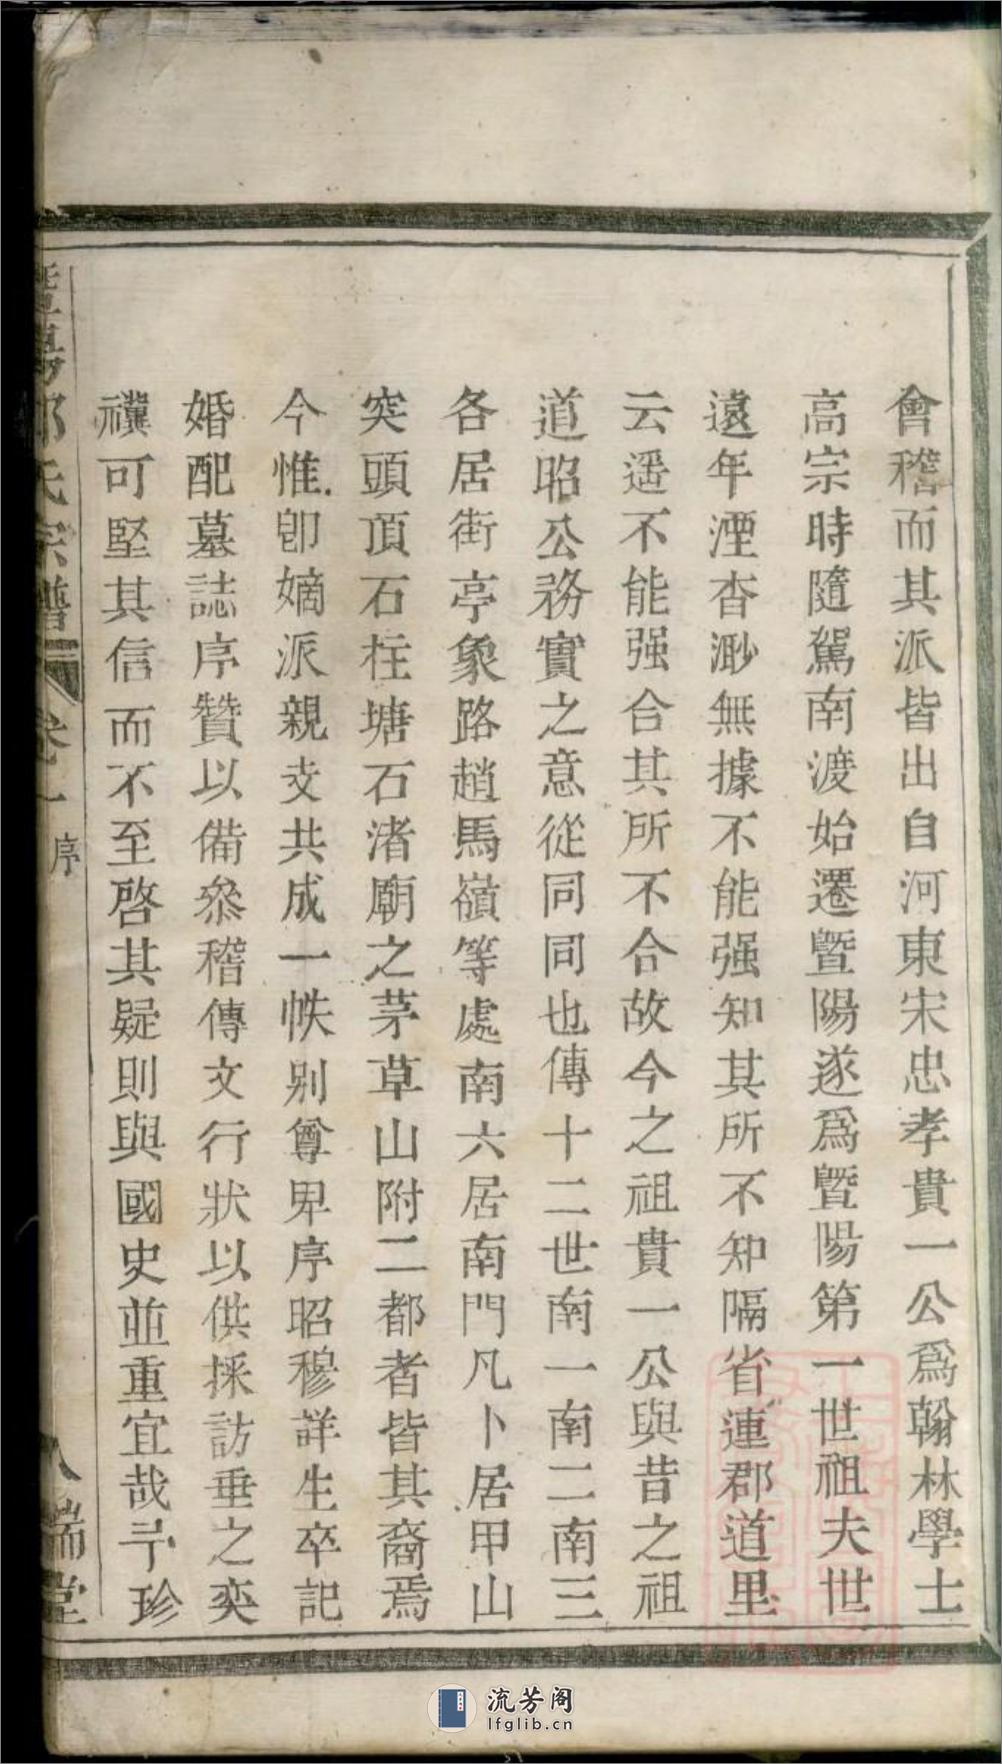 會稽而其派皆出自河東宋忠孝貴一公爲翰林學士
高宗時隨駕南渡始遷暨陽遂爲暨陽第一世祖夫世
遠年湮杳渺無據不能强知其所不知隔省連郡道里
云遥不能强合其所不合故今之祖貴一公與昔之祖
道昭公務實之意從同同也傳十二世南一南二南三
各居街亭象路趙馬嶺等處南六居南門凡卜居甲山
突頭頂石柱塘石渚廟之茅草山附二都者皆其裔焉
今惟卽嫡派親支共成一帙别尊卑序昭穆詳生卒記
婚配墓誌序贊以備叅稽傳文行狀以供採訪垂之奕
禩可堅其信而不至啓其疑則與國史並重宜哉予珍
氏宗譜
卷一
序
八
瑞堂
流芳阁
lfglib.cn